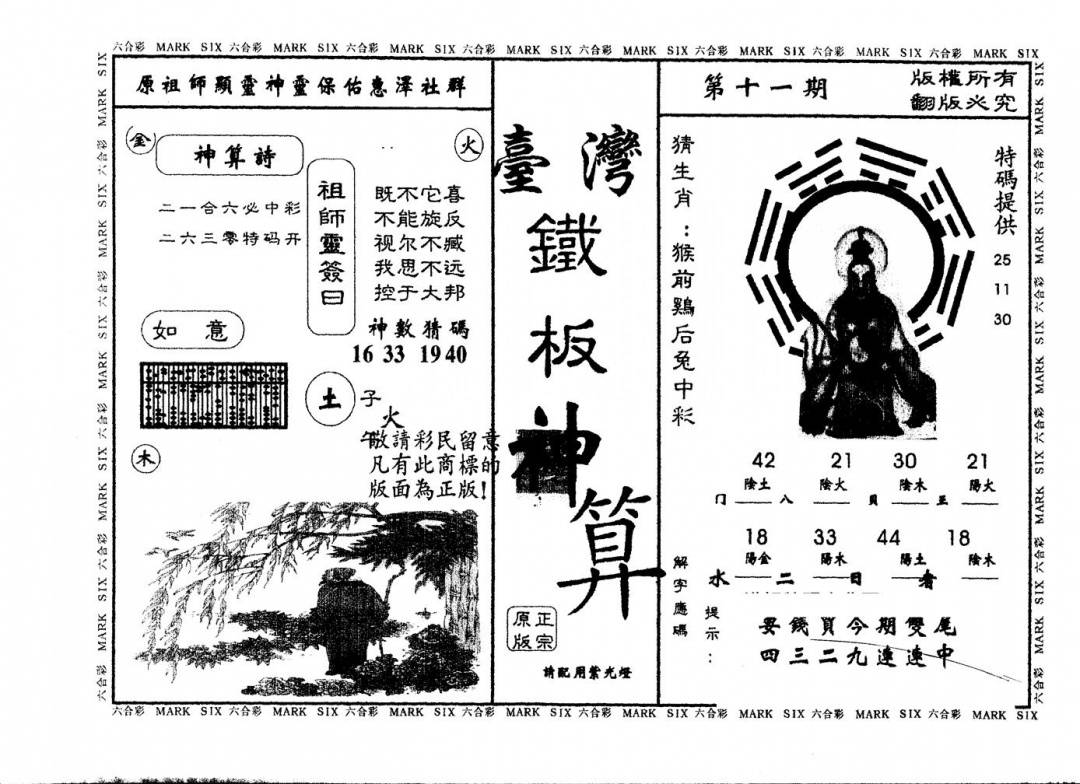 六合彩 MARK SIX 六合彩 MARK SIX 六合彩 MARK SIX 六合彩 MARK SIX 六合彩 MARK SIX 六合彩 MARK SIX 六合彩 MARK SIX 六合彩 MARK SIX
原祖師顯靈神靈保佑惠澤社群
金
火
神算詩
二一合六必中彩
二六三零特码开
祖師靈簽曰
既不它喜
不能旋反
视尔不臧
我思不远
控于大邦
神數猜碼
16 33 19 40
如意
土
子
火
午
敬請彩民留意
凡有此商標的
版面為正版!
木
臺灣
鐵
板
神
算
正宗
原版
請配用紫光燈
第十一期
版權所有
翻版必究
猜生肖:猴前鷄后兔中彩
特碼提供
25
11
30
42 21 30 21
陰土 陰火 陰木 陽火
八
18 33 44 18
陽金 陽木 陽土 陰木
水 二 日 者
解字應碼
提示:
要錢買今期雙尾
四三二九連連中
六合彩 MARK SIX 六合彩 MARK SIX 六合彩 MARK SIX 六合彩 MARK SIX 六合彩 MARK SIX 六合彩 MARK SIX 六合彩 MARK SIX 六合彩 MARK SIX